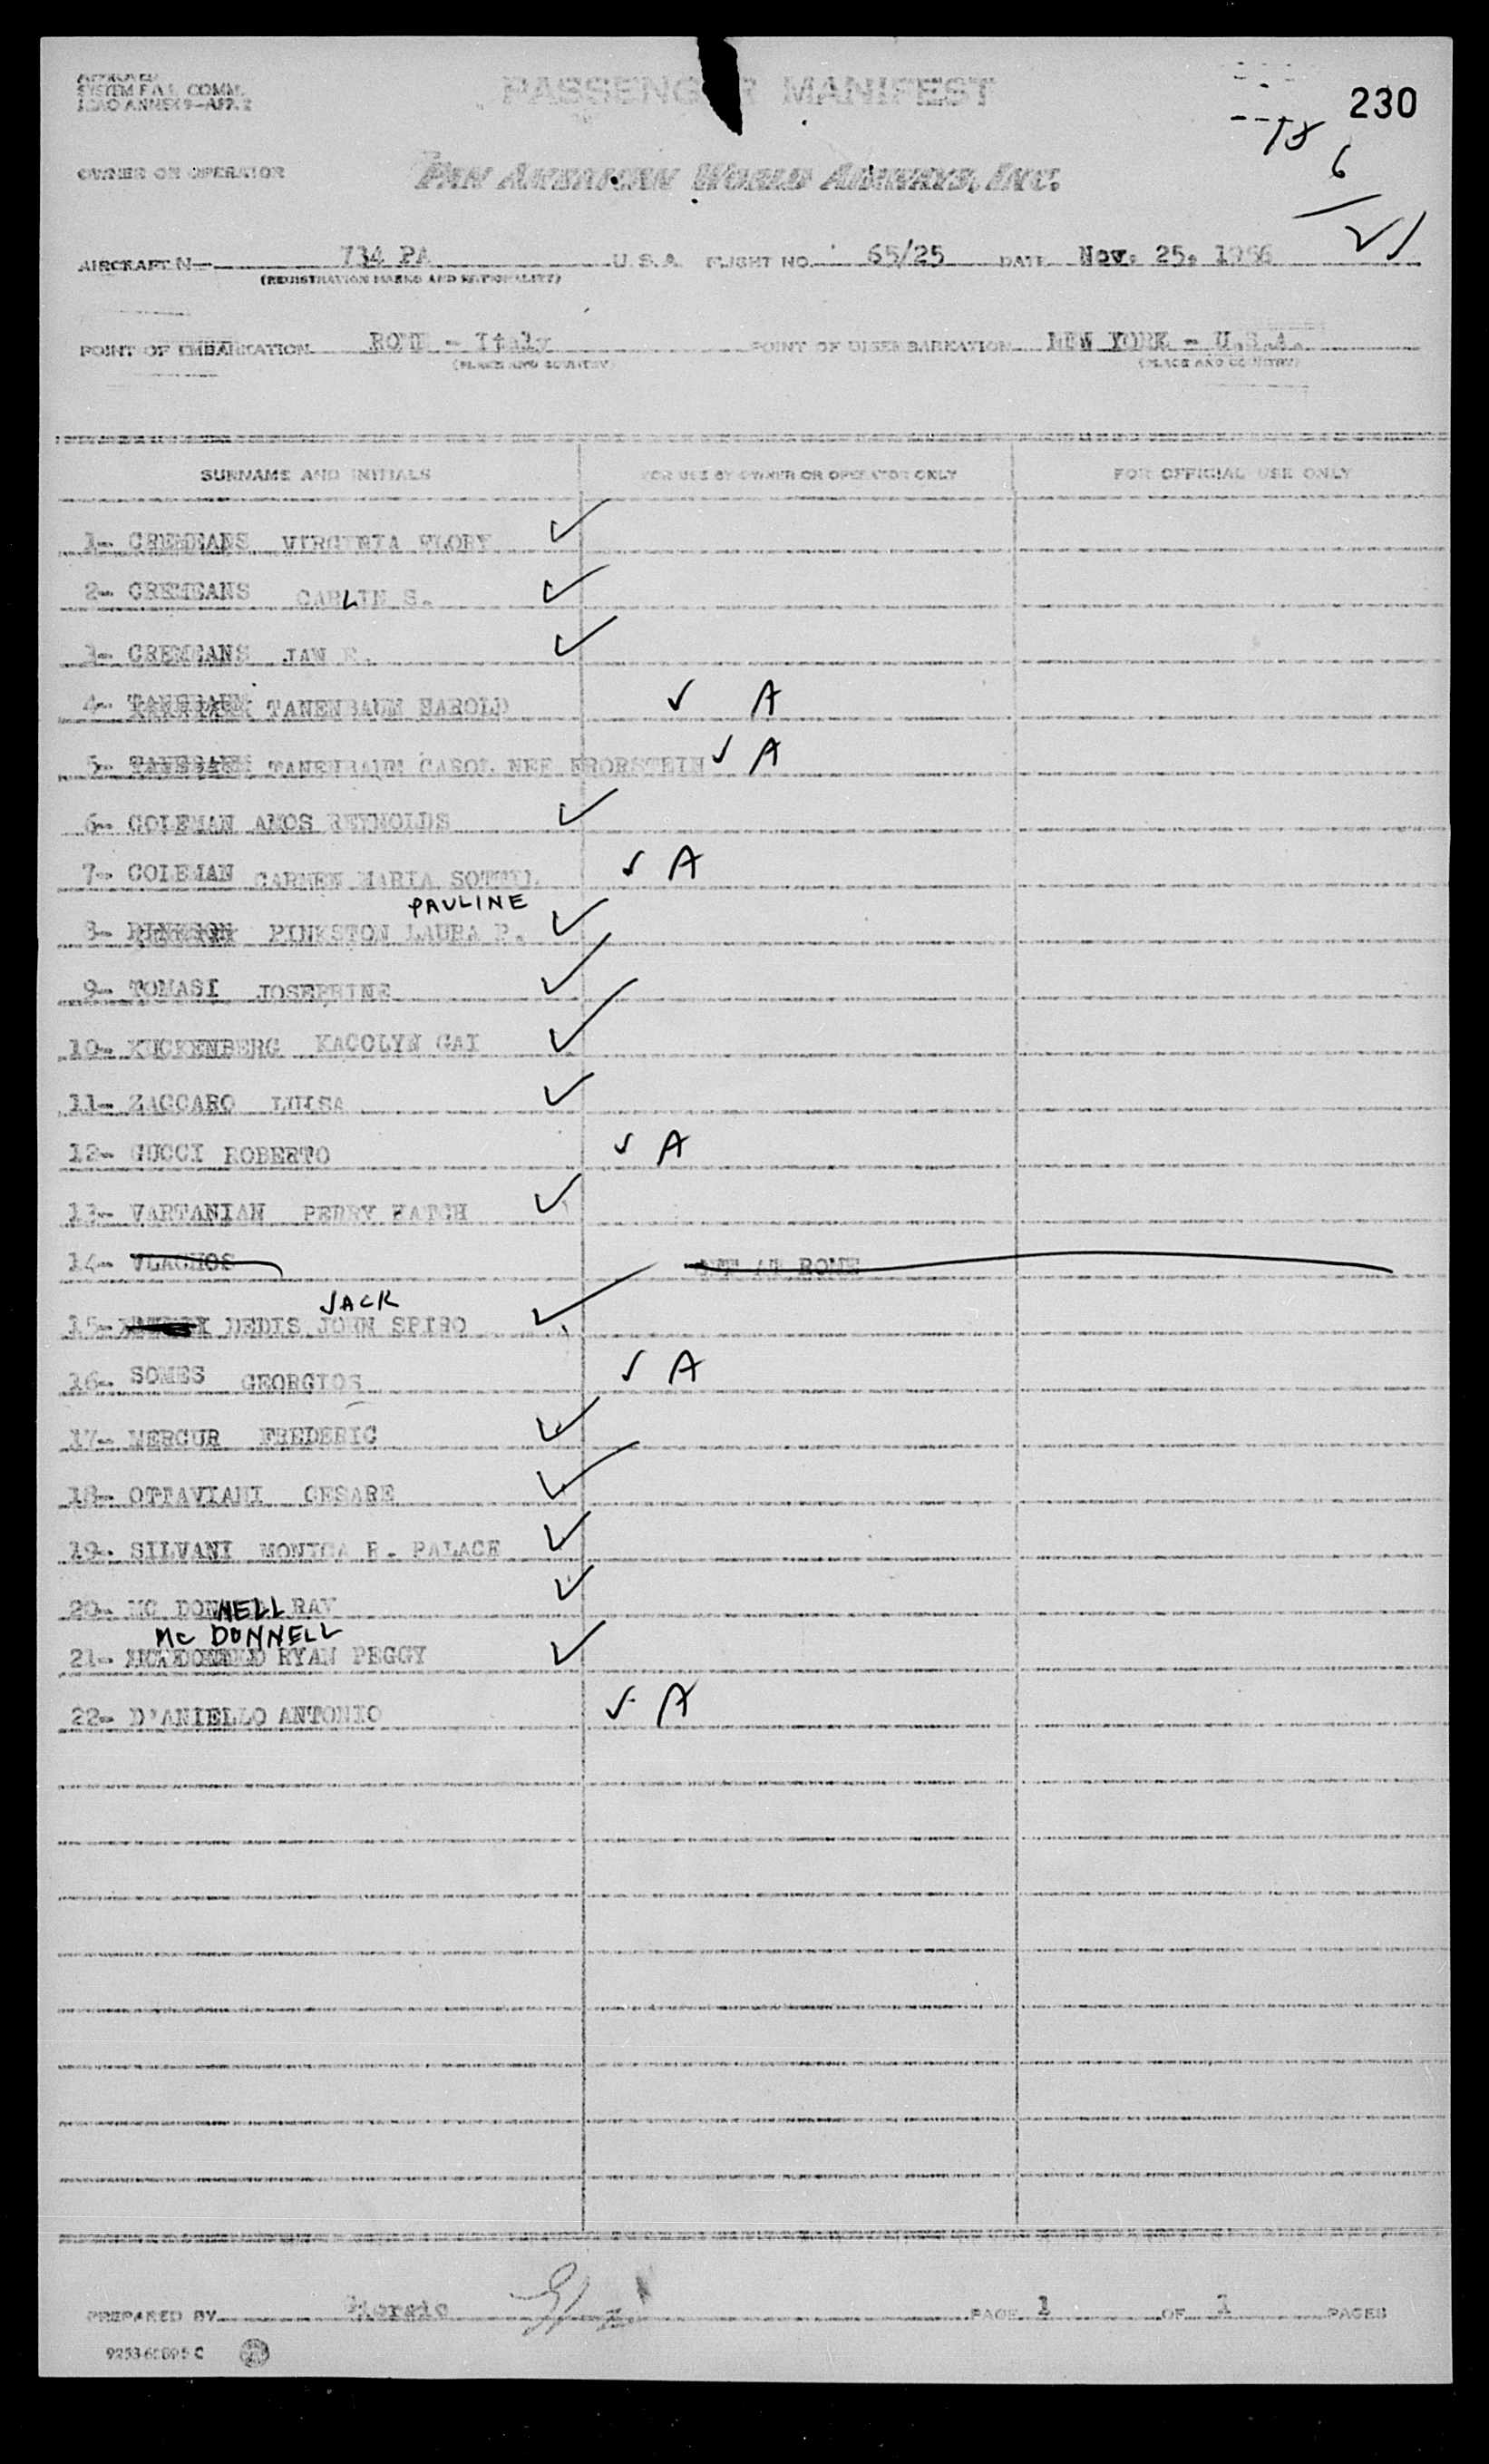 APPROVED
SYSTEM F.A.L. COMM.
ICAO ANNEX 9-APP. 2
PASSENGER MANIFEST
230
15
6
21
OWNER OR OPERATOR
PAN AMERICAN WORLD AIRWAYS, INC.
AIRCRAFT N- 734 PA U.S.A. FLIGHT NO. 65/25 DATE Nov. 25, 1956
(REGISTRATION MARKS AND NATIONALITY)
POINT OF EMBARKATION ROME - Italy POINT OF DISEMBARKATION NEW YORK - U.S.A.
(PLACE AND COUNTRY) (PLACE AND COUNTRY)
SURNAME AND INITIALS FOR USE BY OWNER OR OPERATOR ONLY FOR OFFICIAL USE ONLY
1- CREMEANS VIRGINIA FLORY ✓
2- CREMEANS CARLIN S. ✓
3- CREMEANS JAN E. ✓
4- TANENBAUM HAROLD ✓ A
5- TANENBAUM CAROL NEE BRORSTEIN ✓ A
6- COLEMAN AMOS REYNOLDS ✓
7- COLEMAN CARMEN MARIA ✓ A
PAULINE
8- PINKSTON LAURA P. ✓
9- TOMASI JOSEPHINE ✓
10- KUCKENBERG KACOLYN GAI ✓
11- ZACCARO LUISA ✓
12- GUCCI ROBERTO ✓ A
13- VARTANIAN PERRY HATCH ✓
14- VLACHOS OFF AT ROME
JACK
15- DEDIS JOHN SPIRO ✓
16- SOMES GEORGIOS ✓ A
17- MERCUR FREDERIC ✓
18- OTTAVIANI CESARE ✓
19- SILVANI MONICA R. PALACE ✓
20- MC DONNELL RAY ✓
MC DONNELL
21- RYAN PEGGY ✓
22- D'ANIELLO ANTONIO ✓ A
PREPARED BY PAGE 1 OF 1 PAGES